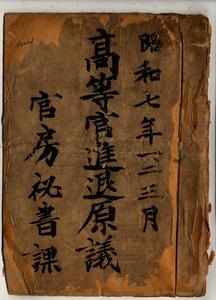 昭和七年一、二、三月
高等官進退原議
官房秘書課